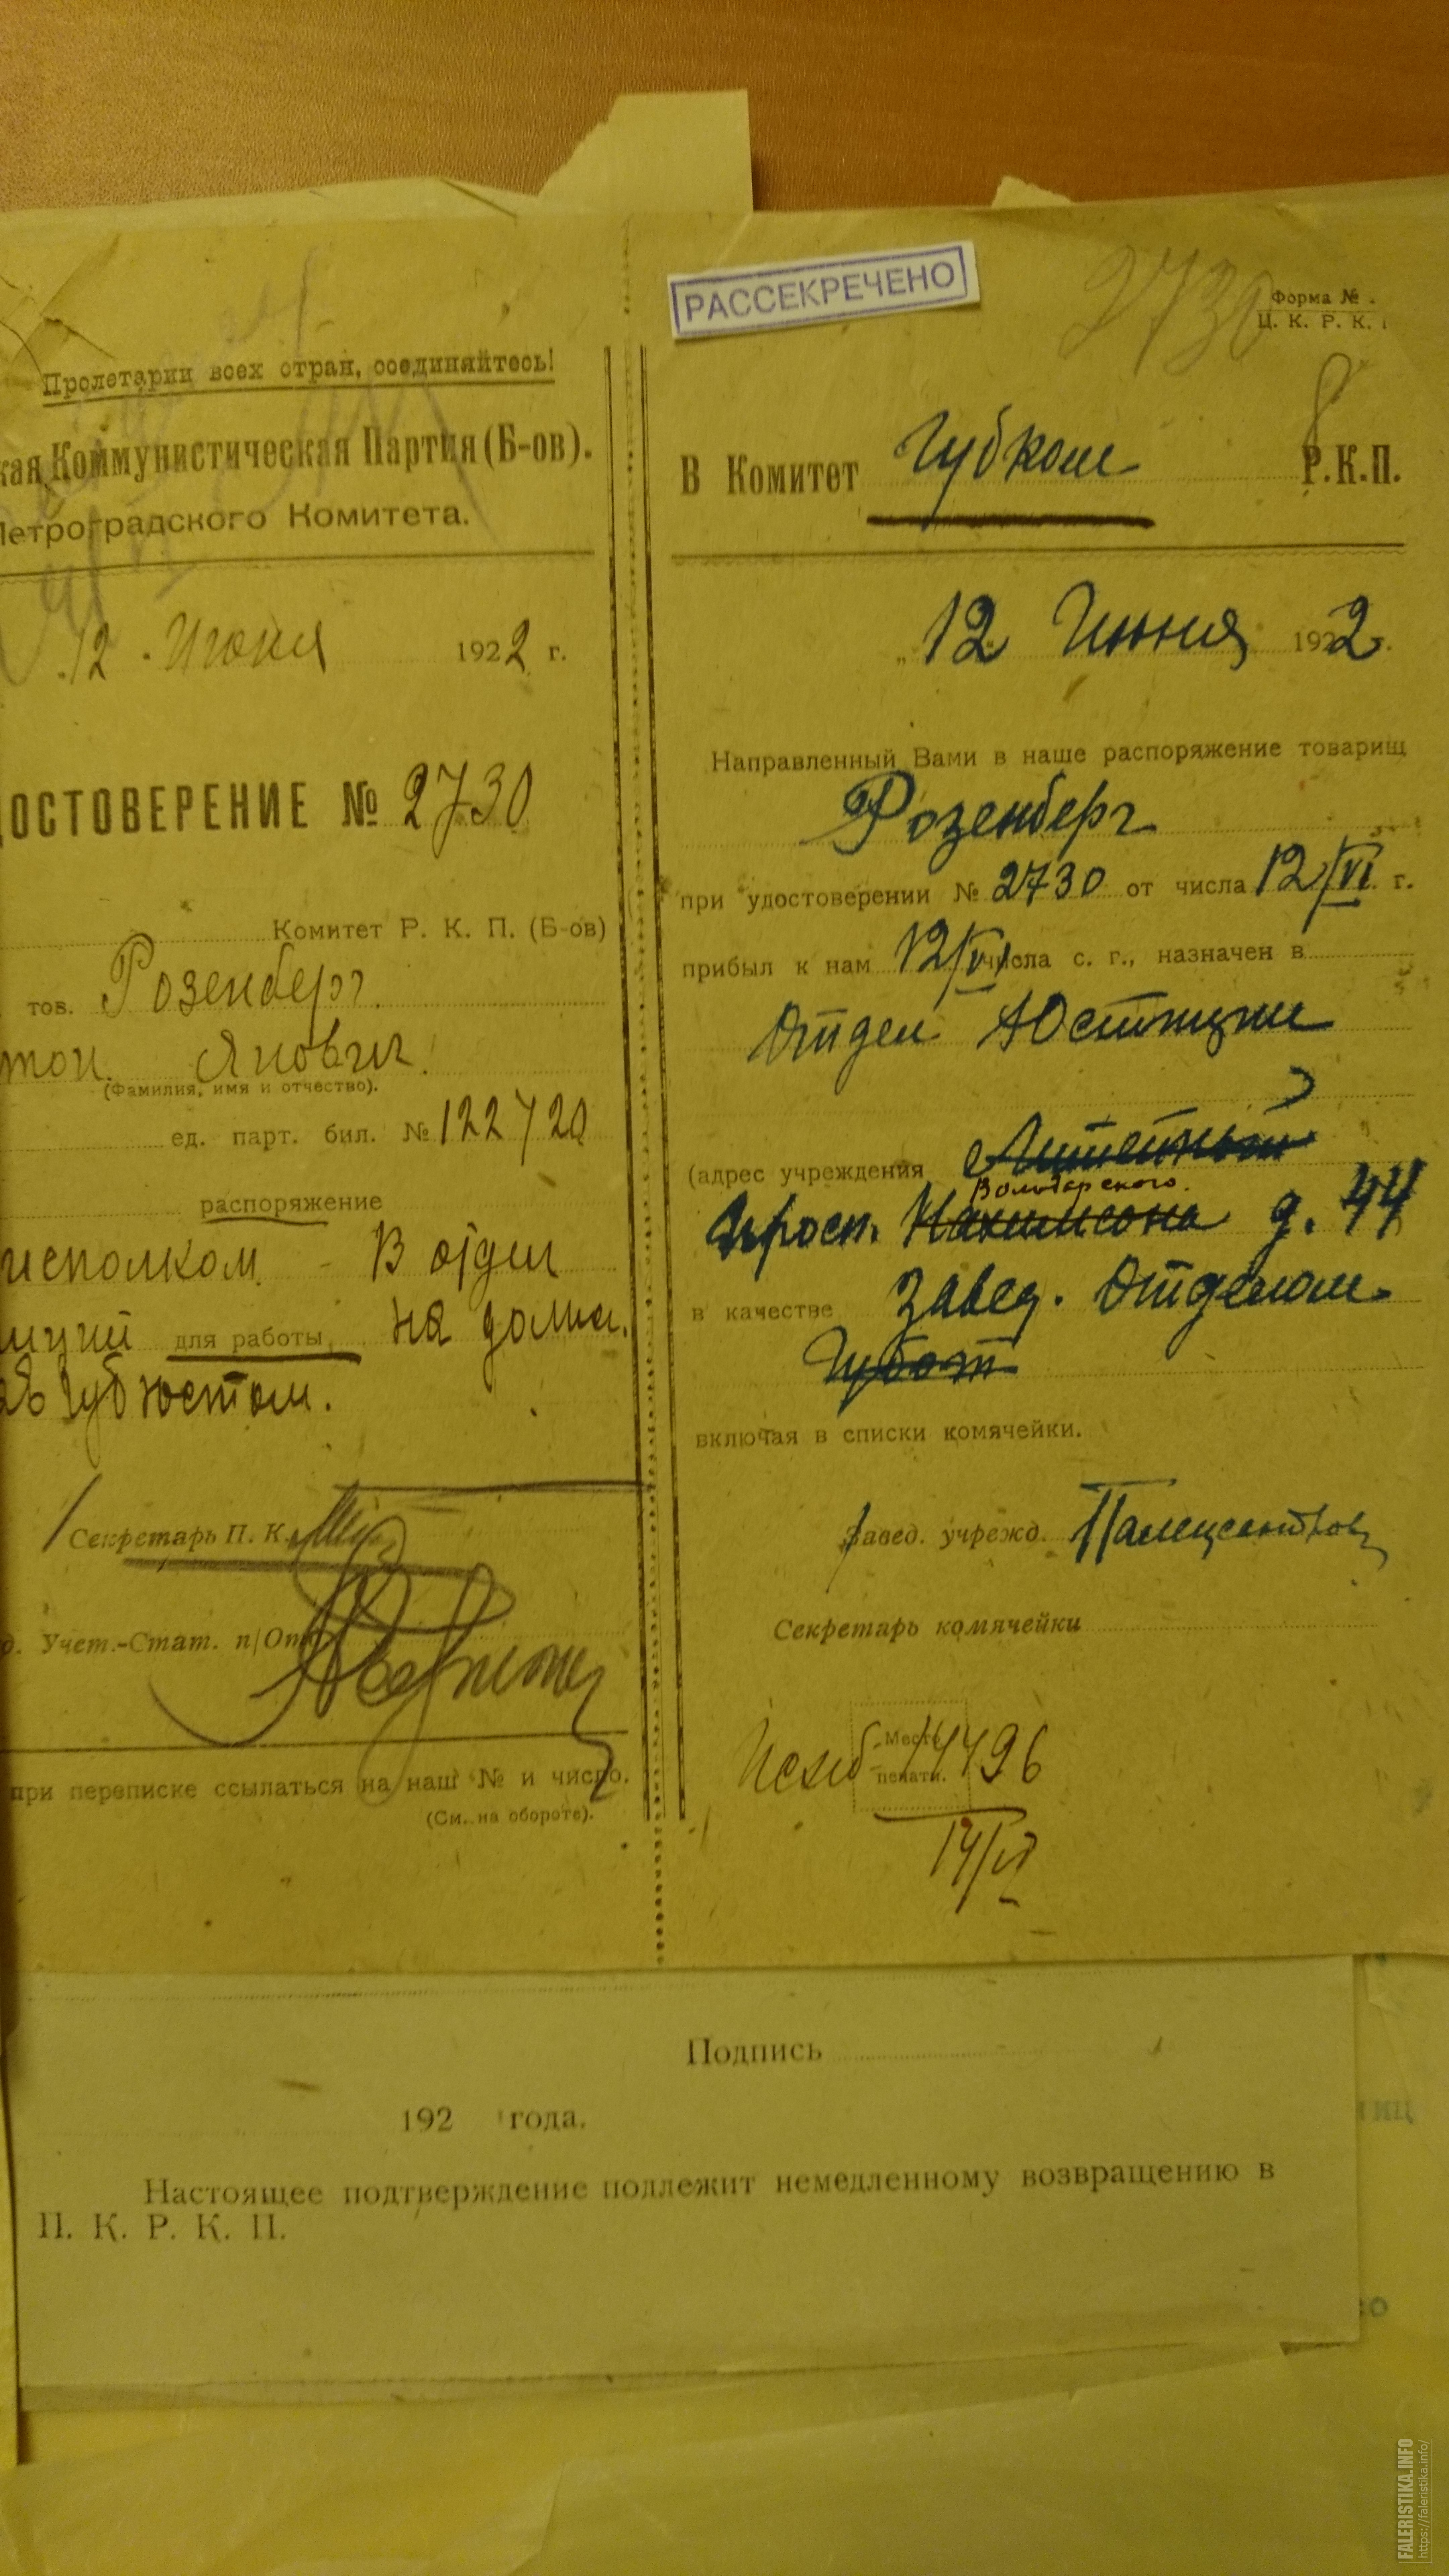 РАССЕКРЕЧЕНО
2730
Форма №
Ц. К. Р. К.
Пролетарии всех стран, соединяйтесь!
кая Коммунистическая Партия (Б-ов).
Петроградского Комитета.
12 Июня 1922 г.
ДОСТОВЕРЕНИЕ № 2730
Комитет Р. К. П. (Б-ов)
тов. Розенберг
тон Янович
(Фамилия, имя и отчество).
ед. парт. бил. № 122720
распоряжение
исполком В отдел
для работы на долж.
Губюстом.
Секретарь П. К.
Учет.-Стат. п/От
при переписке ссылаться на наш № и число.
(См. на обороте).
В Комитет Губком Р.К.П.
„ 12 Июня 1922 г.
Направленный Вами в наше распоряжение товарищ
Розенберг
при удостоверении № 2730 от числа 12/VI г.
прибыл к нам 12/VI числа с. г., назначен в
Отдел Юстиции
(адрес учреждения Литейный
Володарского
просп. Нахимсона д. 44
в качестве Завед. Отделом
Губот
включая в списки комячейки.
Завед. учрежд.
Секретарь комячейки
Место
печати.
14496
14/VI
Подпись
192 года.
Настоящее подтверждение подлежит немедленному возвращению в
П. К. Р. К. П.
FALERISTIKA.INFO
https://faleristika.info/